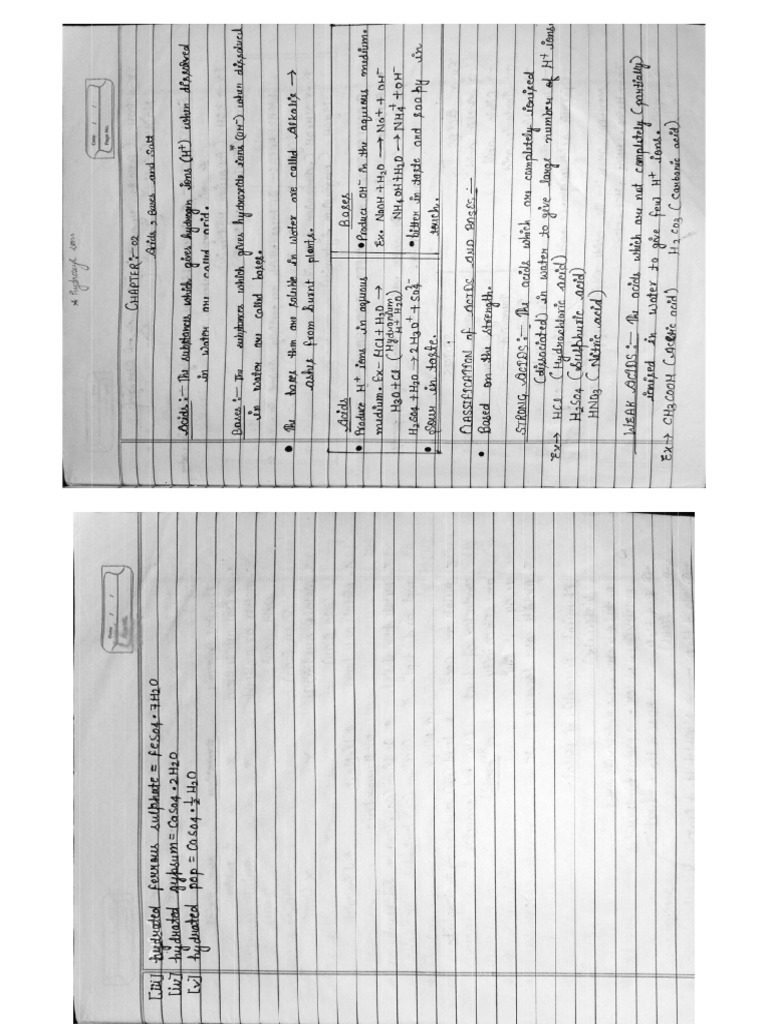 * Hydroxyl ions
Date / /
Page No.
CHAPTER:- 02
Acids, Bases and Salt
Acids:- The substances which gives hydrogen ions (H⁺) when dissolved
in water are called acid.
Bases:- The substances which gives hydroxide ions (OH⁻) when dissolved
in water are called bases.
• The bases than are soluble in water are called Alkalis →
ashes from burnt plants.
Acids
• Produce H⁺ ions in aqueous
medium. Ex- HCl + H₂O →
H₃O + Cl (Hydronium
H⁺ H₂O)
H₂SO₄ + H₂O → 2H₃O⁺ + SO₄²⁻
• Sour in taste.
Bases
• Produce OH⁻ in the aqueous medium.
Ex. NaOH + H₂O → Na⁺ + OH⁻
NH₄OH + H₂O → NH₄⁺ + OH⁻
• bitter in taste and soapy in
touch.
CLASSIFICATION OF ACIDS AND BASES:-
• Based on the strength.
STRONG ACIDS:- The acids which are completely ionised
(dissociated) in water to give large number of H⁺ ions.
Ex → HCl (Hydrochloric acid)
H₂SO₄ (Sulphuric acid)
HNO₃ (Nitric acid)
WEAK ACIDS:- The acids which are not completely (partially)
ionised in water to give few H⁺ ions.
Ex → CH₃COOH (Acetic acid) H₂CO₃ (Carbonic acid)
Date / /
[iii] hydrated ferrous sulphate = FeSO₄ • 7H₂O
[iv] hydrated gypsum = CaSO₄ • 2H₂O
[v] hydrated pop = CaSO₄ • ½ H₂O